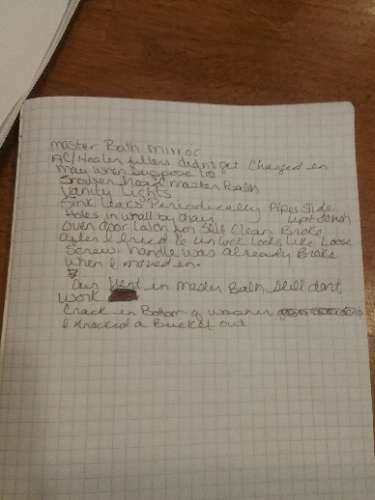 Master Bath Mirror
AC/Heater filters didn't get Changed in
May when suppose to
Shower head master Bath
Vanity Lights
Sink Leaks Periodically Pipes Slide
Holes in wall by chair up + down
Oven door Latch for Self Clean Broke
after I tried to unlock looks like Loose
Screw. handle was already Broke
when I moved in.
Air Vent in Master Bath Still don't
work
Crack in Bottom of washer
I knocked a Bucket out